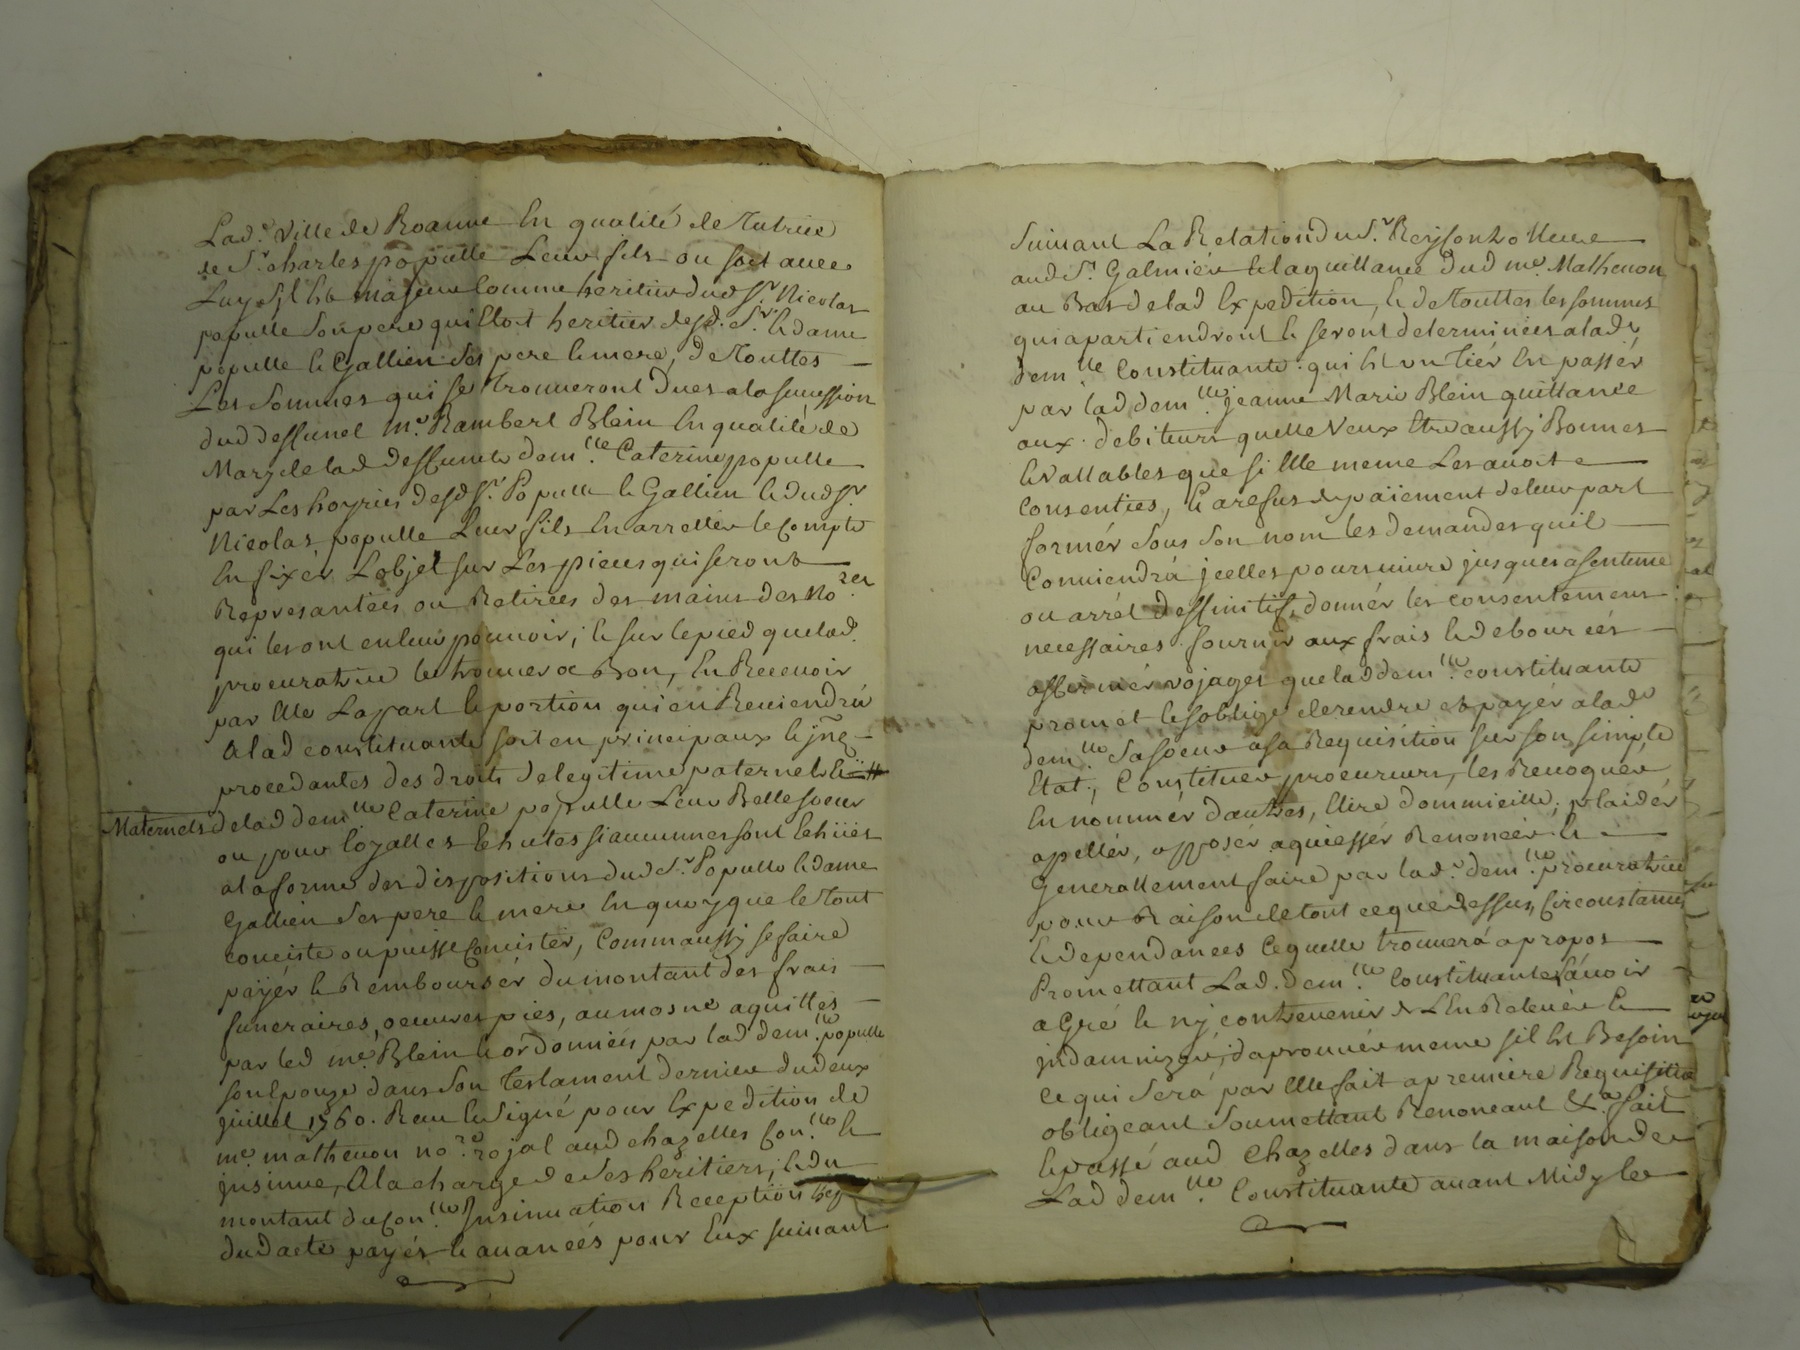 Lad.e Ville de Roanne En qualité de Tutrice
de S.r charles populle Leur fils ou soit avec
Luy S'il Est majeur Comme heritier dud S.r Nicolas
populle Son pere qui Etoit heritier desd. S.r et dame
populle et Gallien Ses pere et mere, de Touttes
Les Sommes qui se trouveront dues a la succession
dud deffunct m.e Rambert Blein En qualité de
Mary de lad deffunte dem.lle Caterine populle
par Les hoyries desd S.r Populle et Gallien et dud S.r
Nicolas populle Leur fils En arretter le Compte
En fixér L'objet sur Les pieces qui seront
Representées ou Retirées des mains des No.res
qui les ont en leur pouvoir, et sur le pied que lad.
procuratrice le trouvera Bon, En Recevoir
par Elle La part et portion qui en Reviendra
a lad constituante soit en principaux et jnt.
procedantes des droits de legitime paternels et #
Maternels de lad dem.lle Caterine populle Leur Belle soeur
ou pour loyalles Echutes si aucunnes sont Echües
a la forme des dispositions dud S.r Populle et dame
Gallien Ses pere et mere En quoy que le Tout
conciste ou puisse Concister, Comm aussy se faire
payér et Remboursér du montant des frais
funeraires, oeuvres pies, aumosne aquittés
par led m.e Blein et ordonnées par lad dem.lle populle
son Epouze dans Son Testament dernier du deux
juillet 1760. Recu et Signé pour Expedition de
m.e mathevon no.re Rojal aud chazelles Con.llé et
jnsinué, A la charge de Ses heritiers, et du
montant du Con.lle jnsinuation Reception
dud acte payés et avancées pour Eux suivant
Suivant La Relation du S.r Reyson
aud S.t Galmiér et la quittance dud m.e Mathevon
au Bas de lad Expedition, et de Touttes les sommes
qui apartiendront et seront determinées a lad.e
dem.lle Constituante qui Est un Tiér En passér
par lad dem.lle jeanne Marie Blein quittance
aux debiteurs quelle Veux Etre aussy Bonnes
et vallables que si Elle meme Les avoit
Consenties, et a refus de païement de leur part
formér Sous Son nom les demandes quil
Conviendra jcelles poursuivre jusques a sentence
ou arrét deffinitif, donnér les consentemens
necessaires fournir aux frais et debourcés
affirmér voyages que lad dem.lle constituante
promet et soblige de rendre et payér a lad.e
dem.lle Sa soeur a sa Requisition sur son simple
Etat, Constituer procureurs, les Revoquér,
En nommér dautres, Elire dommicille, plaidér
apellér, opposér aquiessér Renoncér et
Generallement faire par lad.e dem.lle procuratrice
pour Raison de tout ce que dessus, Circonstances
et dependances ce quelle trouvera a propos
Promettant Lad. dem.lle Constituante Lavoir
agré et ny contrevenir & L'En Relevér et
jndamnizér, daprouvér meme sil Est Besoin
ce qui Sera par Elle fait a premiére Requisition
obligeant Soumettant Renonceant &.a fait
et passé aud Chazelles dans la maison de
Lad dem.lle Constituante avant Midy le